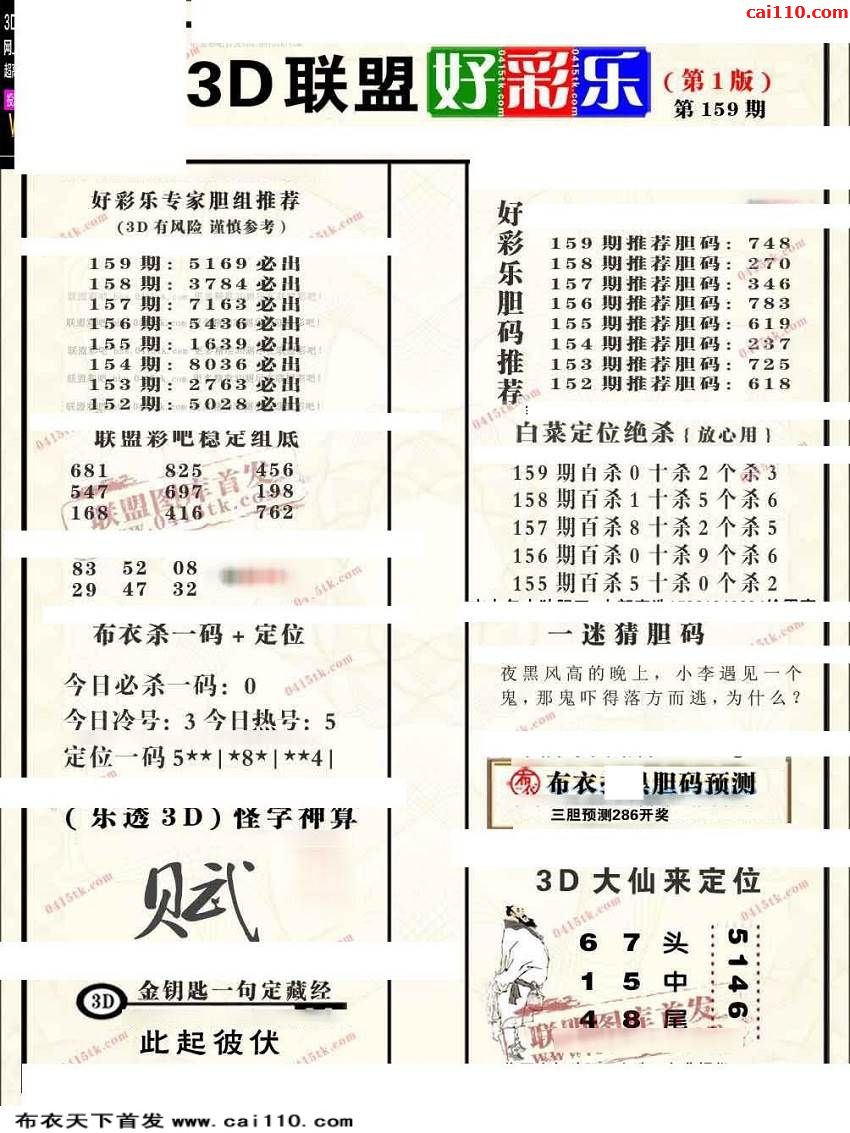 cai110.com
3D联盟好彩乐
(第1版)
第159期
好彩乐专家胆组推荐
(3D有风险 谨慎参考)
159期: 5169必出
158期: 3784必出
157期: 7163必出
156期: 5436必出
155期: 1639必出
154期: 8036必出
153期: 2763必出
152期: 5028必出
联盟彩吧稳定组底
681 825 456
547 697 198
168 416 762
83 52 08
29 47 32
布衣杀一码+定位
今日必杀一码: 0
今日冷号: 3 今日热号: 5
定位一码5**|*8*|**4|
(乐透3D)怪字神算
赋
3D 金钥匙一句定藏经
此起彼伏
好彩乐胆码推荐
159期推荐胆码: 748
158期推荐胆码: 270
157期推荐胆码: 346
156期推荐胆码: 783
155期推荐胆码: 619
154期推荐胆码: 237
153期推荐胆码: 725
152期推荐胆码: 618
白菜定位绝杀{放心用}
159期百杀0十杀2个杀3
158期百杀1十杀5个杀6
157期百杀8十杀2个杀5
156期百杀0十杀9个杀6
155期百杀5十杀0个杀2
一迷猜胆码
夜黑风高的晚上, 小李遇见一个
鬼, 那鬼吓得落方而逃, 为什么?
布衣 胆码预测
三胆预测286开奖
3D大仙来定位
6 7 头
1 5 中
4 8 尾
5146
联盟图库首发
www.0415tk.com
0415tk.com
布衣天下首发 www.cai110.com